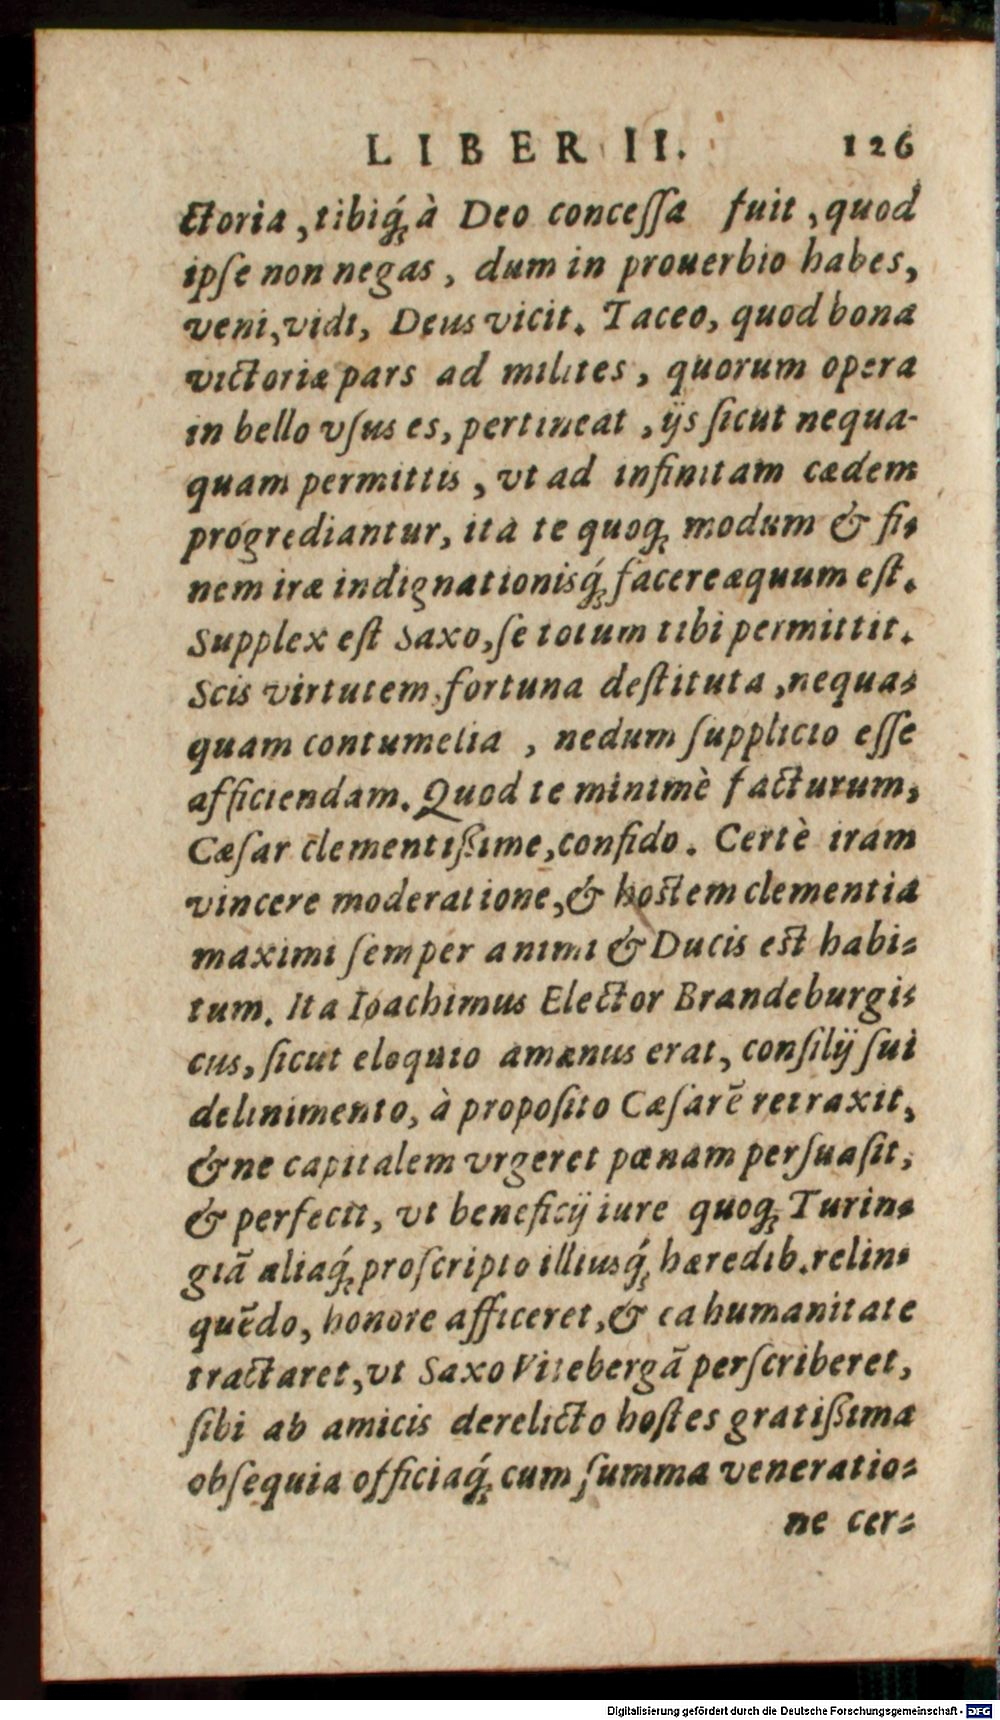 LIBER II. 126
ctoria, tibiq́; à Deo concessa fuit, quod
ipſe non negas, dum in prouerbio habes,
veni, vidi, Deus vicit. Taceo, quod bona
victoriæ pars ad milites, quorum opera
in bello vſus es, pertineat, ijs ſicut nequa-
quam permittis, vt ad infinitam cædem
progrediantur, ita te quoq; modum & fi-
nem iræ indignationisq́; facere æquum eſt.
Supplex eſt Saxo, ſe totum tibi permittit.
Scis virtutem, fortuna deſtituta, nequa-
quam contumelia, nedum ſupplicio eſſe
afficiendam. Quod te minimè facturum,
Cæſar clementißime, confido. Certè iram
vincere moderatione, & hostem clementia
maximi ſemper animi & Ducis est habi-
tum. Ita Ioachimus Elector Brandeburgi-
cus, ſicut eloquio amænus erat, conſilij ſui
delinimento, à propoſito Cæſarē retraxit,
& ne capitalem vrgeret pænam perſuaſit,
& perfecit, vt beneficij iure quoq; Turin-
giā aliaq́; proſcripto illiusq́; hæredib. relin-
quēdo, honore afficeret, & ea humanitate
tractaret, vt Saxo Vitebergā perſcriberet,
ſibi ab amicis derelicto hoſtes gratißima
obſequia officiaq́; cum ſumma veneratio-
ne cer-
Digitalisierung gefördert durch die Deutsche Forschungsgemeinschaft - DFG